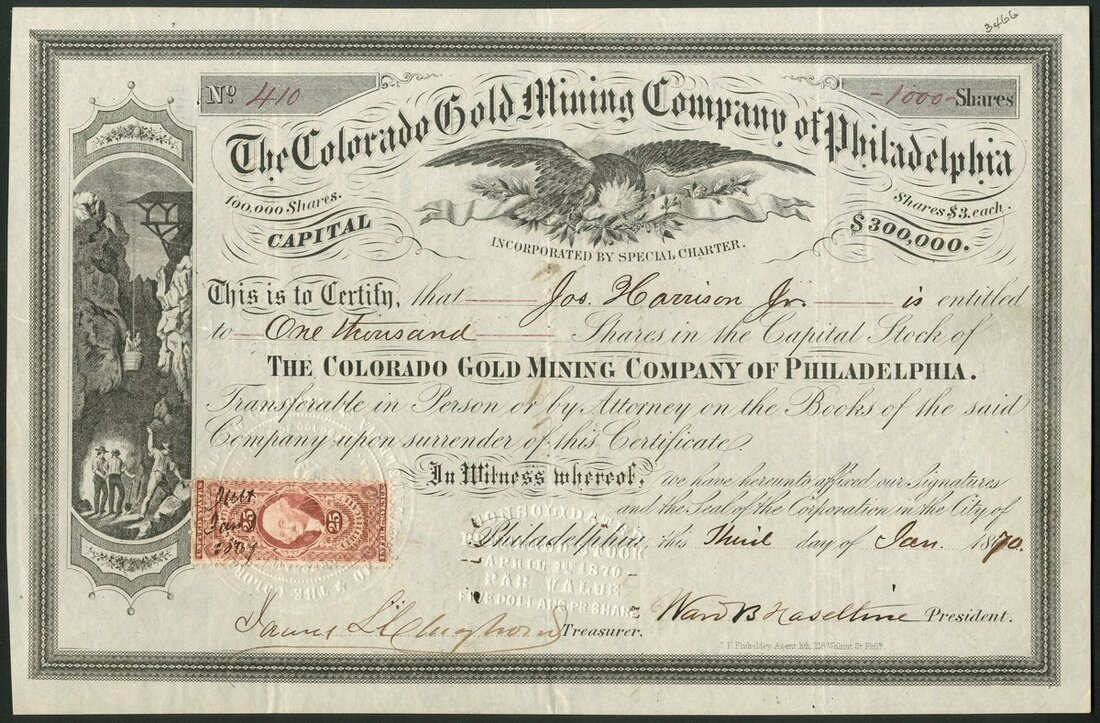 3466
No 410
-1000- Shares
The Colorado Gold Mining Company of Philadelphia
100,000 Shares.
Shares $3. each.
CAPITAL
$300,000.
INCORPORATED BY SPECIAL CHARTER.
This is to Certify, that Jos. Harrison Jr. is entitled
to One thousand Shares in the Capital Stock of
THE COLORADO GOLD MINING COMPANY OF PHILADELPHIA.
Transferable in Person or by Attorney on the Books of the said
Company upon surrender of this Certificate.
In Witness whereof, we have hereunto affixed our Signatures
and the Seal of the Corporation in the City of
Philadelphia, this Third day of Jan. 1870.
25 25
Jan
CONSOLIDATED
STOCK
APRIL 1st 1870
PAR VALUE
FIVE DOLLARS PR SHARE
Treasurer.
Ward B Haseltine President.
J. F. Finkeldey, Agent, lith. 228 Walnut St Phila.